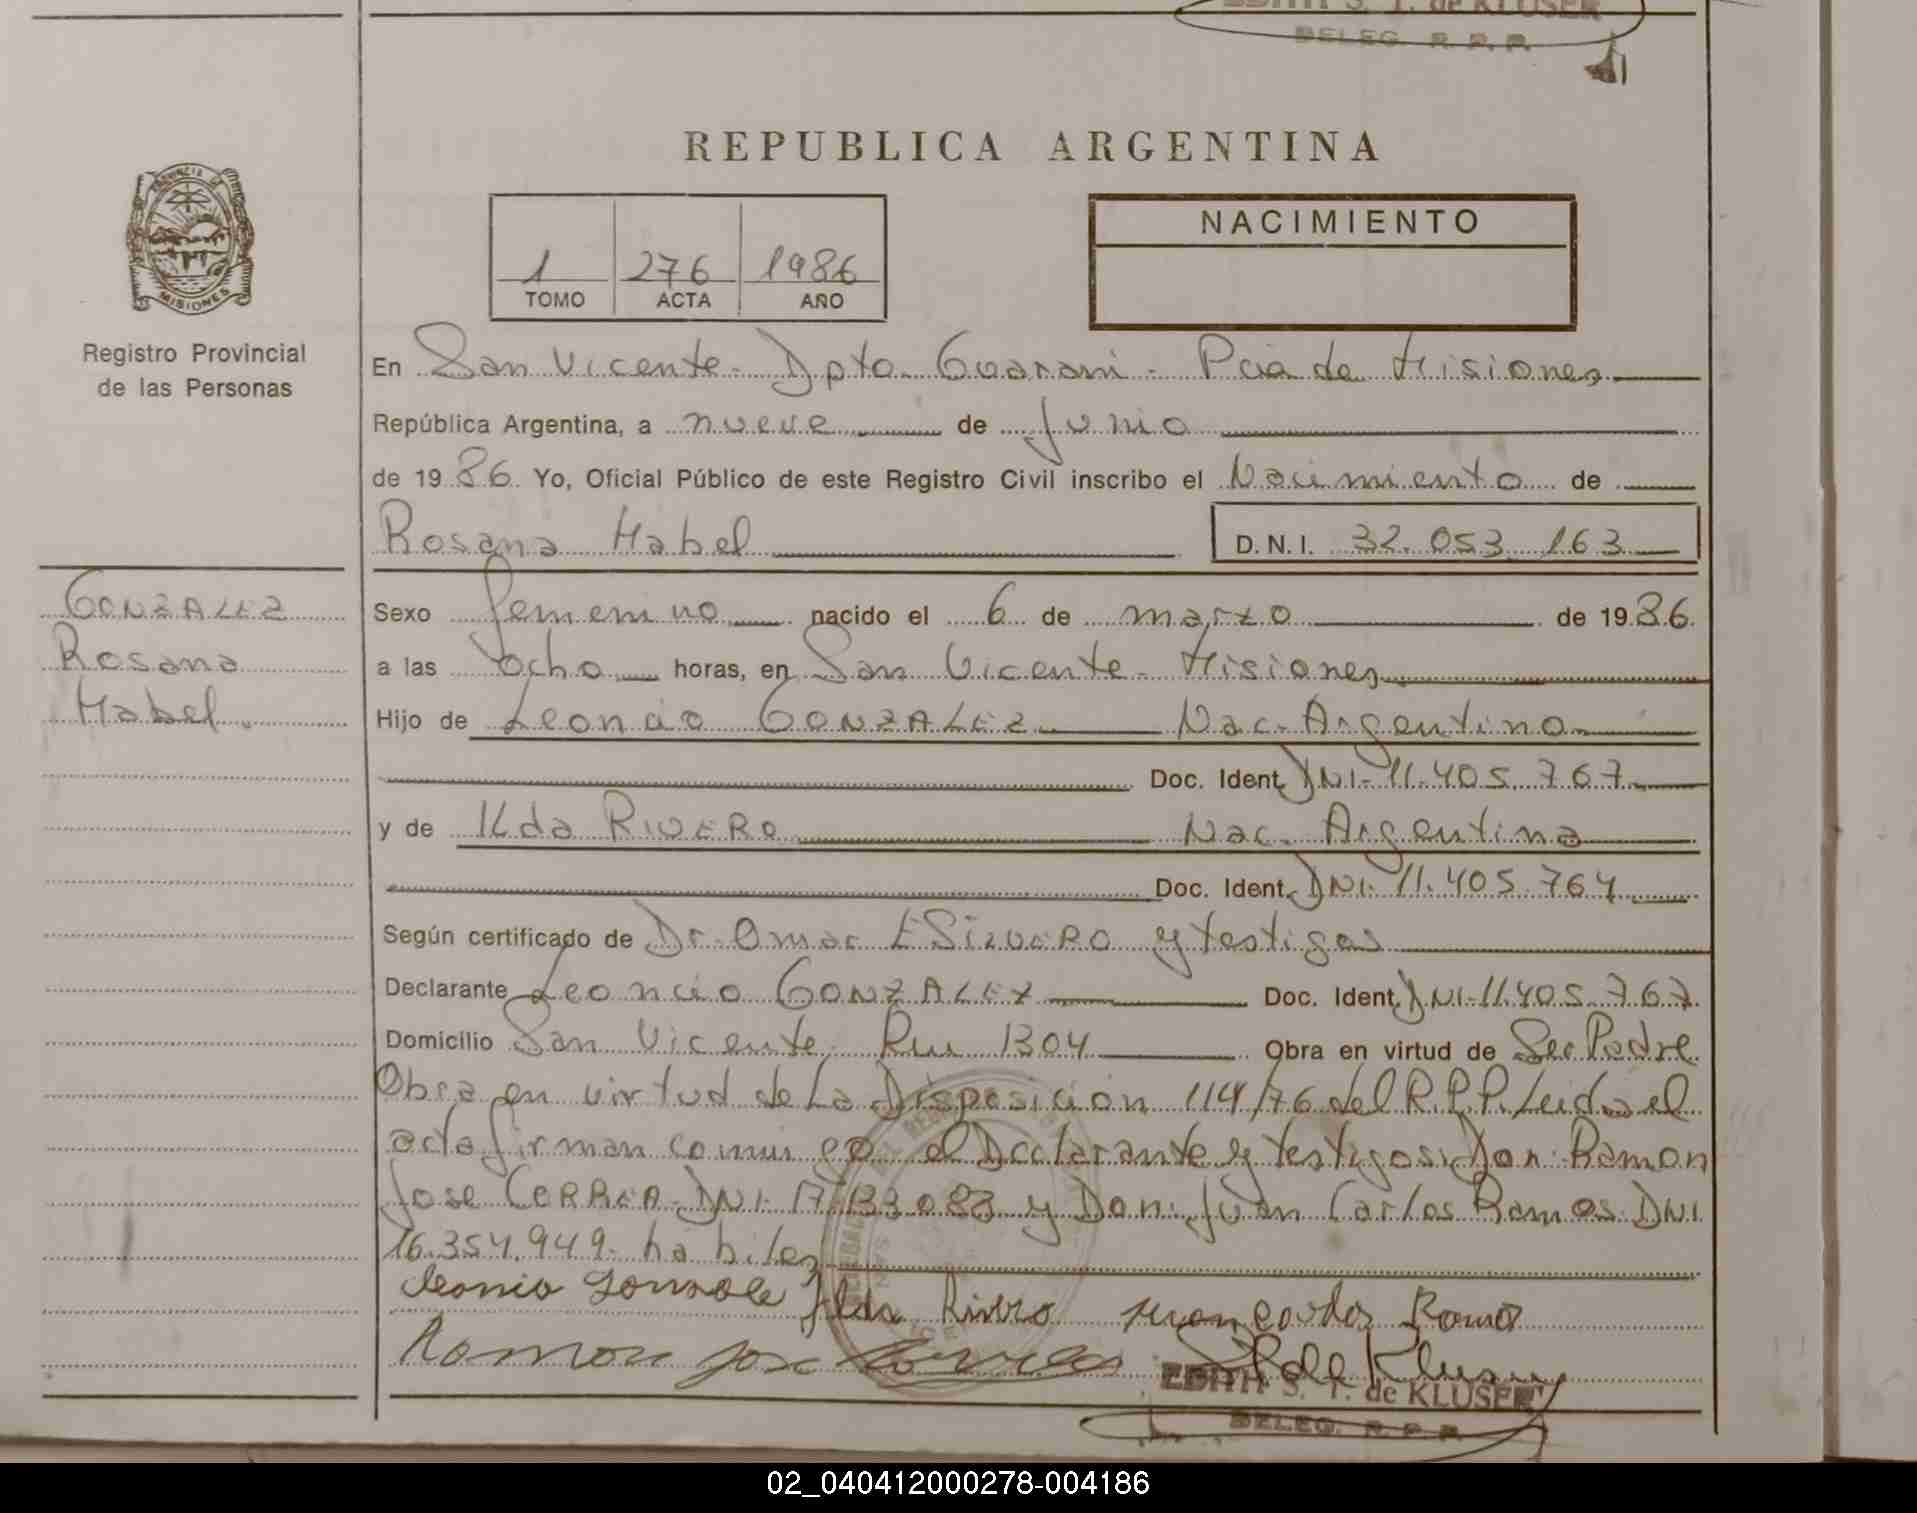 EDITH S. T. de KLUSER
DELEG. R. P. P.
REPUBLICA ARGENTINA
PROVINCIA DE
MISIONES
Registro Provincial
de las Personas
1 276 1986
TOMO ACTA AÑO
NACIMIENTO
En San Vicente - Dpto Guarani - Pcia de Misiones
República Argentina, a nueve de Junio
de 1986 Yo, Oficial Público de este Registro Civil inscribo el Nacimiento de
Rosana Mabel D.N.I. 32.053.163
GONZALEZ
Rosana
Mabel.
Sexo femenino nacido el 6 de marzo de 1986.
a las ocho horas, en San Vicente - Misiones
Hijo de Leoncio GONZALEZ Nac. Argentino
Doc. Ident. DNI - 11.405.767
y de Ilda RIVERO Nac. Argentina
Doc. Ident. DNI. 11.405.764
Según certificado de Dr. Omar y testigos
Declarante Leoncio GONZALEZ Doc. Ident. DNI-11.405.767.
Domicilio San Vicente Ru 1304 Obra en virtud de Ser Padre
Obra en virtud de La Disposición 114/76 del R.P.P. Leida el
acta firman conmigo el Declarante y testigos: Don: Ramon
Jose CORREA - DNI. 17.133.083 y Don: Juan Carlos Ramos DNI
16.354.949 - habiles
Leoncio Gonzale Ilda Rivero Juan Carlos Ramos
Ramon Jose Correa
EDITH S. T. de KLUSER
DELEG. R. P. P.
02_040412000278-004186